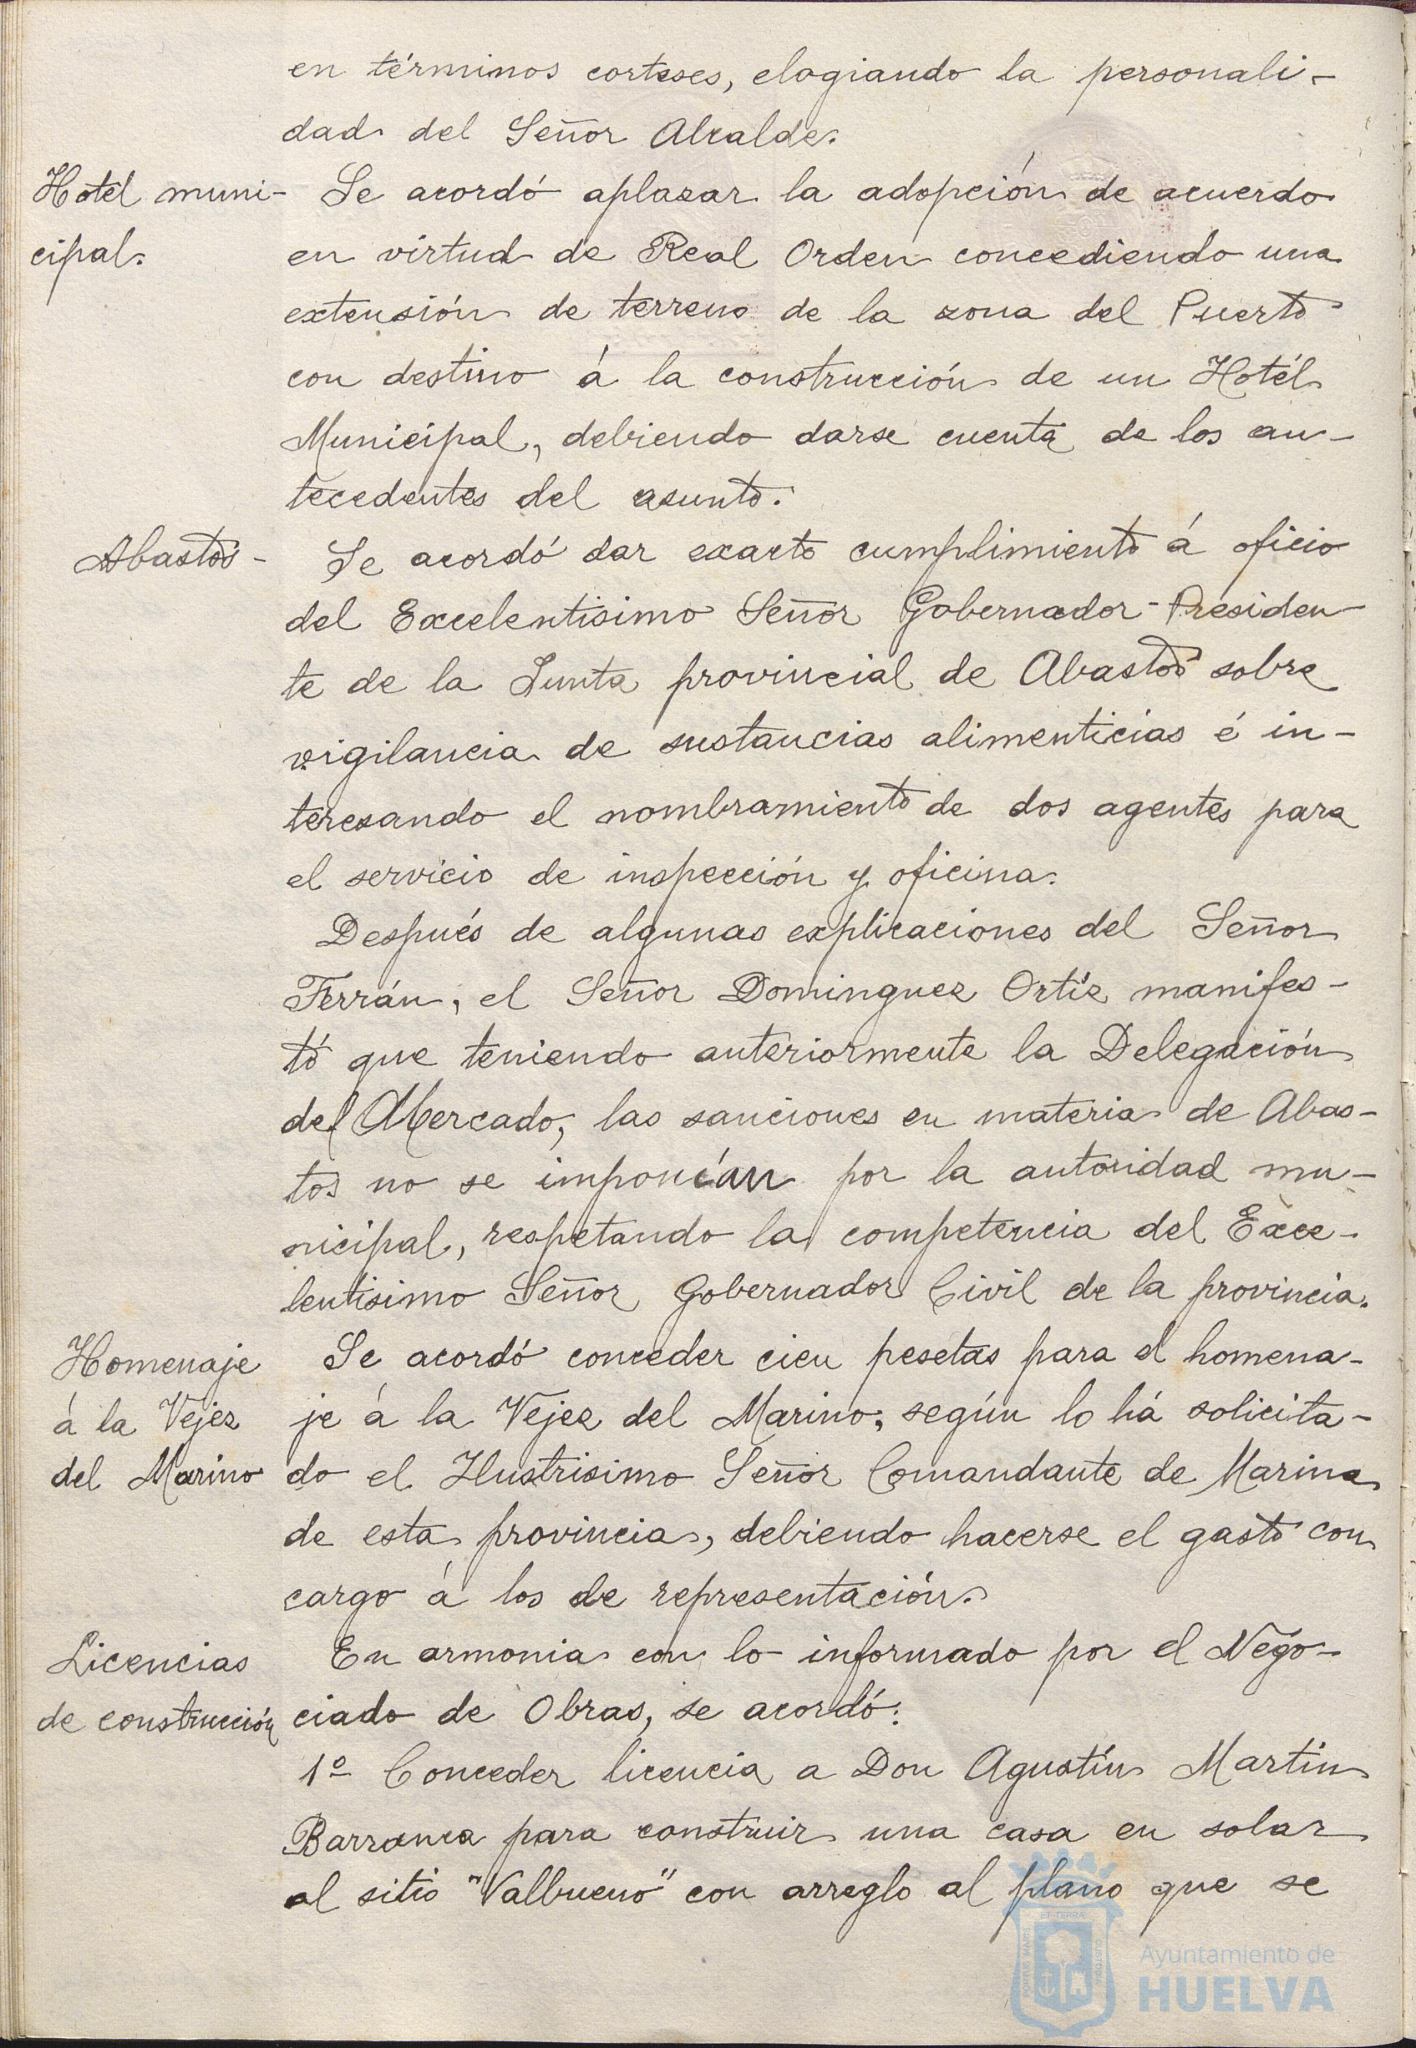 en términos corteses, elogiando la personali-
dad del Señor Alcalde.
Hotel muni-
cipal.
Se acordó aplazar la adopción de acuerdo
en virtud de Real Orden concediendo una
extensión de terreno de la zona del Puerto
con destino á la construcción de un Hotél
Municipal, debiendo darse cuenta de los an-
tecedentes del asunto.
Abastos-
Se acordó dar exacto cumplimiento á oficio
del Excelentisimo Señor Gobernador-Presiden-
te de la Junta provincial de Abastos sobre
vigilancia de sustancias alimenticias é in-
teresando el nombramiento de dos agentes para
el servicio de inspección y oficina.
Después de algunas explicaciones del Señor
Ferrán, el Señor Dominguez Ortíz manifes-
tó que teniendo anteriormente la Delegación
del Mercado, las sanciones en materia de Abas-
tos no se imponían por la autoridad mu-
nicipal, respetando la competencia del Exce-
lentisimo Señor Gobernador Civil de la provincia.
Homenaje
á la Vejez
del Marino
Se acordó conceder cien pesetas para el homena-
je á la Vejez del Marino, según lo há solicita-
do el Ilustrisimo Señor Comandante de Marina
de esta provincia, debiendo hacerse el gasto con
cargo á los de representación.
Licencias
de construcción
En armonia con lo informado por el Nego-
ciado de Obras, se acordó:
1º Conceder licencia a Don Agustín Martin
Barranca para construir una casa en solar
al sitio "Valbueno" con arreglo al plano que se
Ayuntamiento de
HUELVA